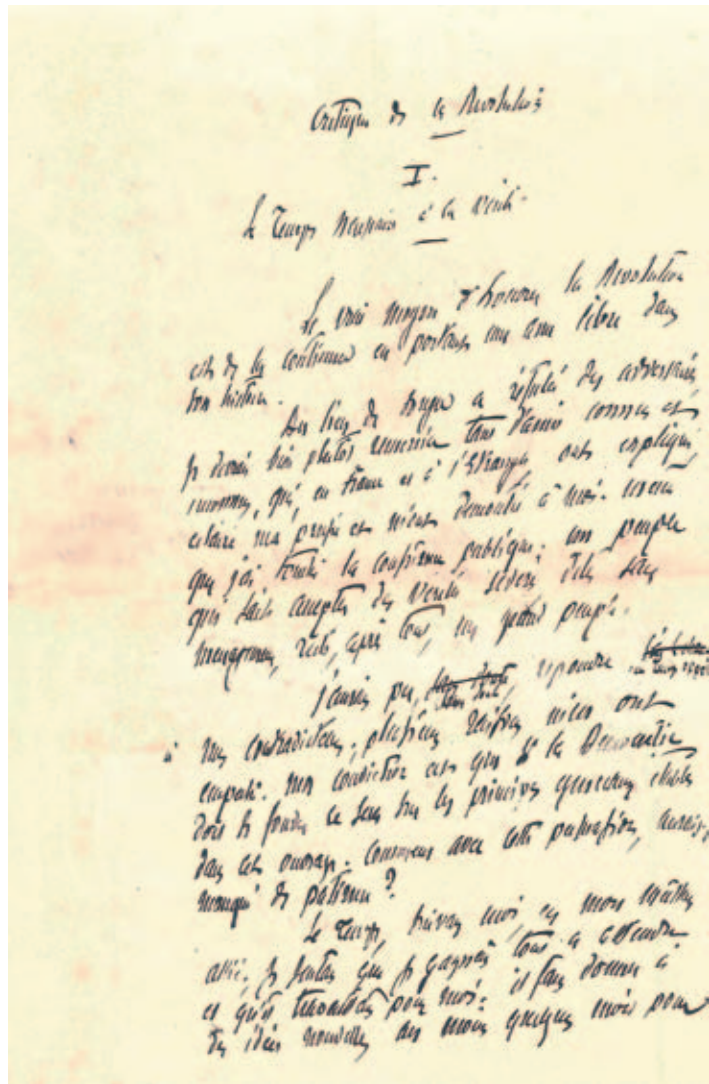 Critique de la Révolution
I.
Le Temps nécessaire à la vérité.
Le vrai moyen d'honorer la Révolution
est de la continuer en portant une âme libre dans
son histoire.
Au lieu de songer à réfuter des adversaires,
je devrais bien plutôt remercier tous d'amis connus et
inconnus, qui, en France et à l'Etranger, ont expliqué,
éclairé ma pensée et m'ont démontré à moi-même
que j'ai la conscience publique; un peuple
qui sait accepter des vérités sévères dites sans
ménagement, reste, après tout, un grand peuple.
J'aurais pu, sans doute, répondre
à mes contradicteurs; plusieurs raisons m'en ont
empêché. Ma conviction est que si la Démocratie
doit se fonder ce sera sur les principes établis
dans cet ouvrage. Comment avec cette persuasion, aurais-je
manqué de patience?
Le Temps, suivant moi, est mon
allié. Je sentais que je gagnais tout à attendre
et qu'il travaillait pour moi. il faut donner à
des idées nouvelles au moins quelques mois pour